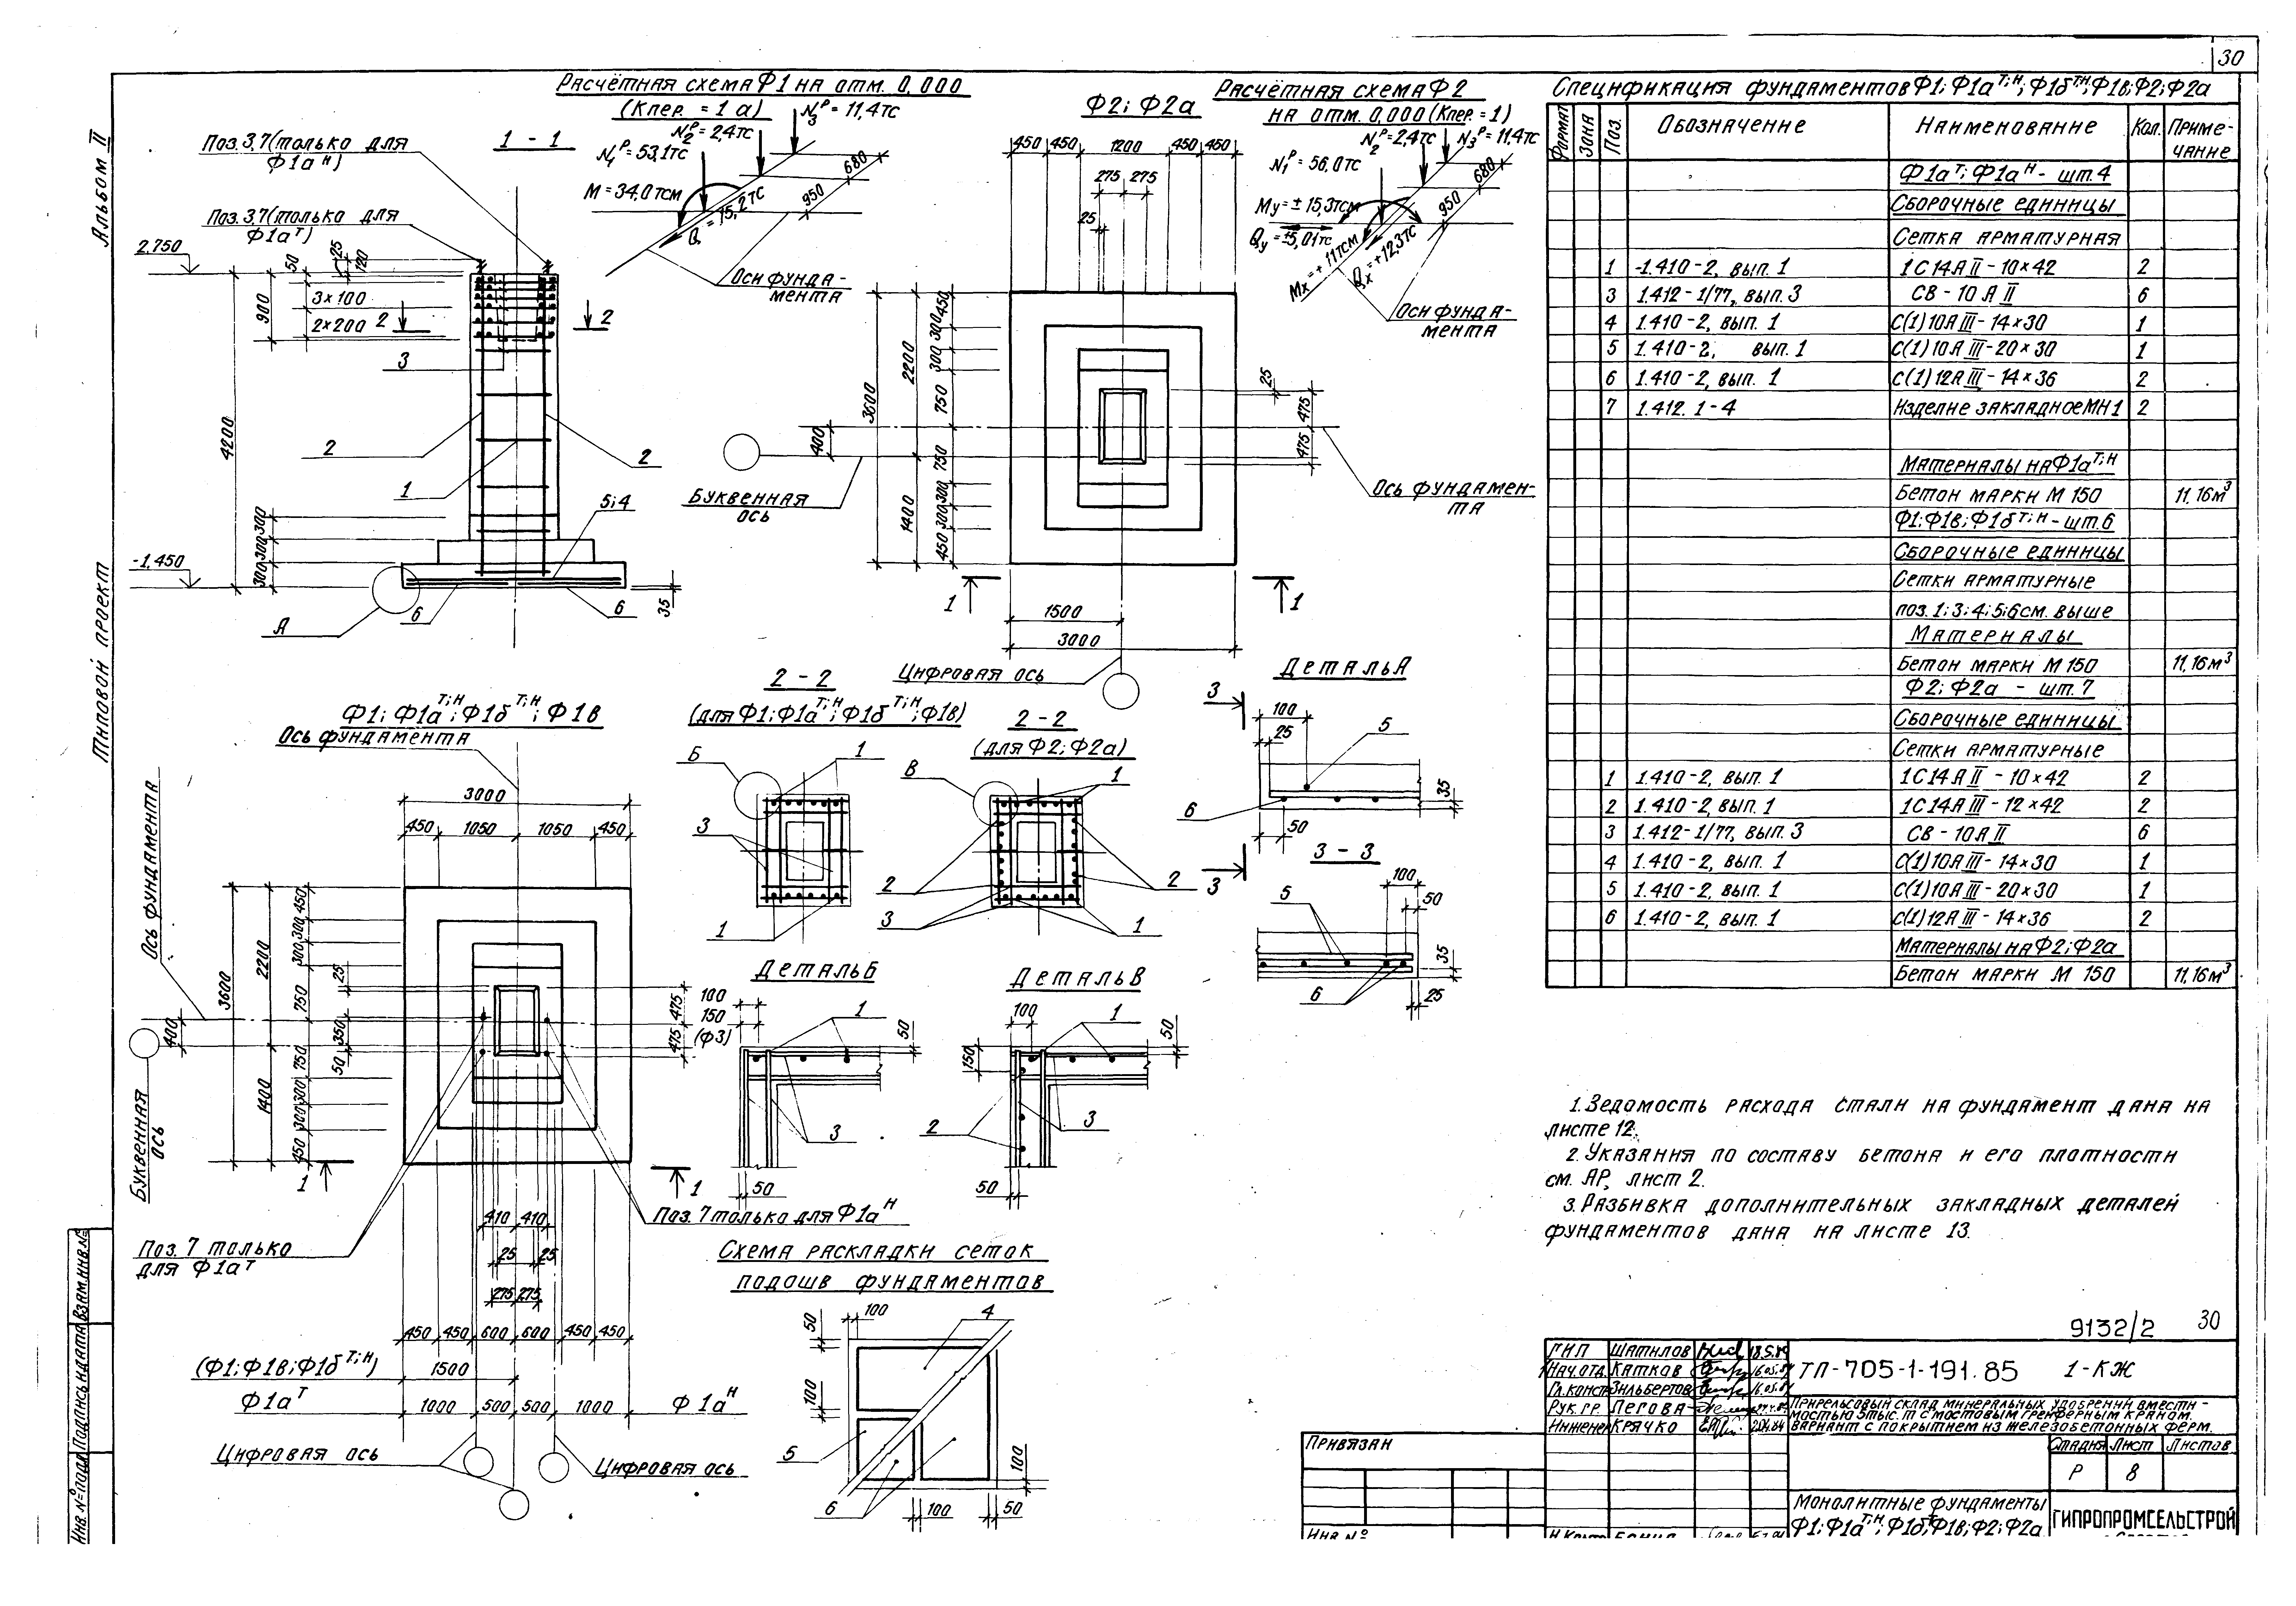 30
Альбом II
Типовой проект
Взам.инв.№
Подпись и дата
Инв.№подл
1 - 1
Поз.3,7(только для
Ф1аН)
Поз.3,7(только для
Ф1аТ)
2,750
50
25
120
900
3×100
2×200
2
2
3
4200
2
2
1
5;4
300
300
300
-1,450
6
6
35
А
Расчётная схема Ф1 на отм. 0,000
(Кпер. = 1а)
N3Р = 11,4тс
N2Р = 2,4тс
N1Р = 53,1тс
М = 34,0тсм
Q = 15,2тс
680
950
Оси фунда-
мента
Ф2; Ф2а
450 450 1200 450 450
275 275
25
450
300
300
750
2200
3600
400
750
300
300
450
1400
25
475
475
Буквенная
ось
Ось фундамен-
та
1
1
1500
3000
Цифровая ось
Расчётная схема Ф2
на отм. 0,000 (Кпер. = 1)
N2Р = 2,4тс
N3Р = 11,4тс
N1Р = 56,0тс
Му = ± 15,3тсм
Qу = ±5,01тс
Мх = + 11тсм
Qх = +12,3тс
680
950
Оси фунда-
мента
Ф1; Ф1аТ;Н; Ф1бТ;Н; Ф1в
Ось фундамента
3000
450 1050 1050 450
Ось фундамента
450
300
300
750
2200
3600
400
750
300
300
450
1400
25
350
50
475
475
Буквенная
ось
1
1
Поз. 7 только
для Ф1аТ
Поз. 7 только для Ф1аН
410 410
25 25
275 275
450 450 600 600 450 450
(Ф1; Ф1в; Ф1бТ;Н)
1500
Ф1аТ
1000 500 500 1000
Ф1аН
Цифровая ось
Цифровая ось
2 - 2
(для Ф1; Ф1аТ;Н; Ф1бТ;Н; Ф1в)
Б
1
3
1
2 - 2
(для Ф2; Ф2а)
В
1
2
2
3
1
Деталь А
3
3
100
25
5
6
35
50
3 - 3
100
50
5
6
35
25
Деталь Б
100
150
(Ф3)
1
50
3
50
Деталь В
100
1
50
150
2
3
50
Схема раскладки сеток
подошв фундаментов
100
50
4
100
5
6
100
50
100
Спецификация фундаментов Ф1; Ф1аТ;Н; Ф1бТН; Ф1в; Ф2; Ф2а
Формат Зона Поз. Обозначение Наименование Кол. Приме-
чание
Ф1аТ; Ф1аН - шт.4
Сборочные единицы
Сетка арматурная
1 -1.410-2, вып. 1 1С14АII-10×42 2
3 1.412-1/77, вып. 3 СВ-10АII 6
4 1.410-2, вып. 1 С(1)10АIII-14×30 1
5 1.410-2, вып. 1 С(1)10АIII-20×30 1
6 1.410-2, вып. 1 С(1)12АIII-14×36 2
7 1.412.1-4 Изделие закладное МН1 2
Материалы на Ф1аТ;Н
Бетон марки М 150 11,16м3
Ф1; Ф1в; Ф1бТ;Н - шт.6
Сборочные единицы
Сетки арматурные
поз. 1; 3; 4; 5; 6 см. выше
Материалы
Бетон марки М 150 11,16м3
Ф2; Ф2а - шт. 7
Сборочные единицы
Сетки арматурные
1 1.410-2, вып. 1 1С14АII-10×42 2
2 1.410-2, вып. 1 1С14АIII-12×42 2
3 1.412-1/77, вып. 3 СВ-10АII 6
4 1.410-2, вып. 1 С(1)10АIII-14×30 1
5 1.410-2, вып. 1 С(1)10АIII-20×30 1
6 1.410-2, вып. 1 С(1)12АIII-14×36 2
Материалы на Ф2; Ф2а
Бетон марки М 150 11,16м3
1. Ведомость расхода стали на фундамент дана на
листе 12.
2. Указания по составу бетона и его плотности
см. АР, лист 2.
3. Разбивка дополнительных закладных деталей
фундаментов дана на листе 13.
9132/2 30
ГИП Шатилов 18.5.84
Нач.отд. Катков 16.05.84
Гл.констр Зильбертов 16.05.84
Рук.гр. Пегова
Инженер Крячко
ТП-705-1-191.85 1-КЖ
Прирельсовый склад минеральных удобрений вмести-
мостью 5тыс.т с мостовым грейферным краном.
Вариант с покрытием из железобетонных ферм.
Стадия Лист Листов
Р 8
Монолитные фундаменты
Ф1; Ф1аТ;Н; Ф1б; Ф1в; Ф2; Ф2а
ГИПРОПРОМСЕЛЬСТРОЙ
Привязан
Инв.№